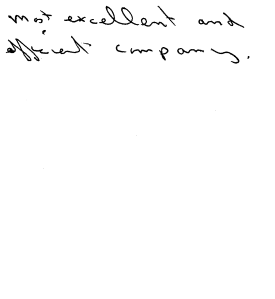 most excellent and
efficient company.